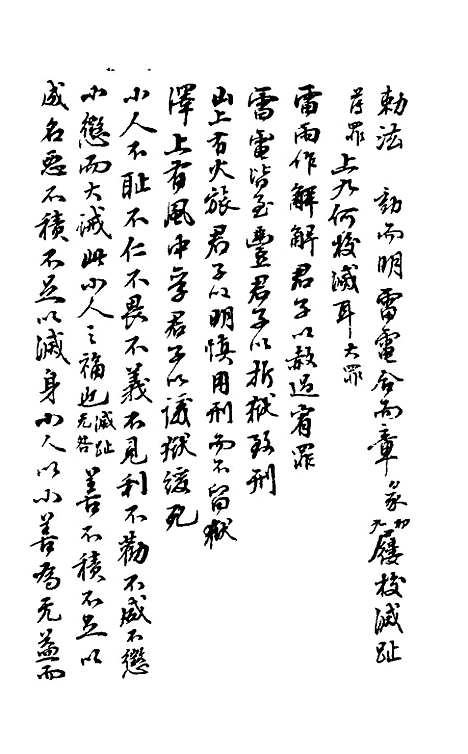 勅法　動而明雷電合而章彖初九屨校滅趾
薄罪上九何校滅耳大罪
雷雨作解解君子以赦過宥罪
雷電皆至豐君子以折獄致刑
山上有火旅君子以明慎用刑而不留獄
澤上有風中孚君子以議獄緩死
小人不耻不仁不畏不義不見利不勸不威不懲
小懲而大誡此小人之福也滅趾无咎善不積不足以
成名惡不積不足以滅身小人以小善為无益而